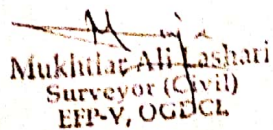 Mukhtiar Ali Lashari
Surveyor (Civil)
EFP-Y, OGDCL